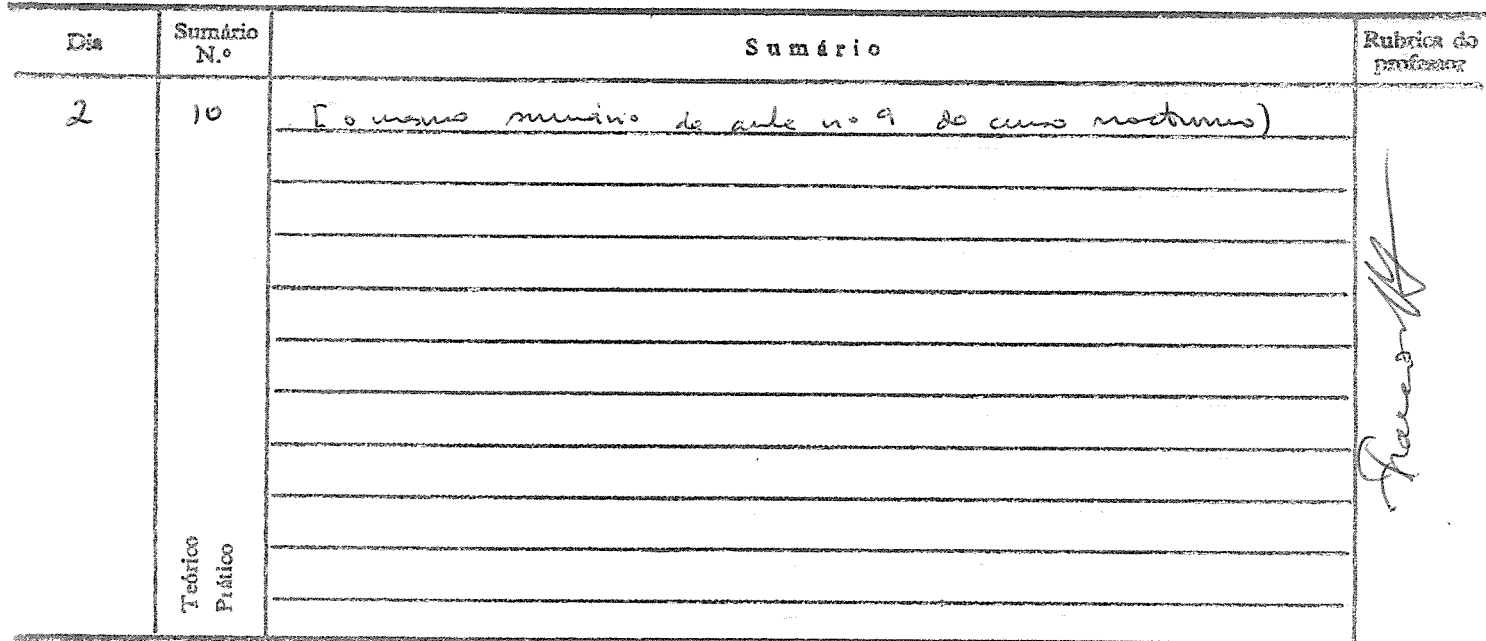 Dia
Sumário
N.º
Sumário
Rubrica do
professor
2
10
[o mesmo sumário da aula nº 9 do curso nocturno)
Teórico
Prático